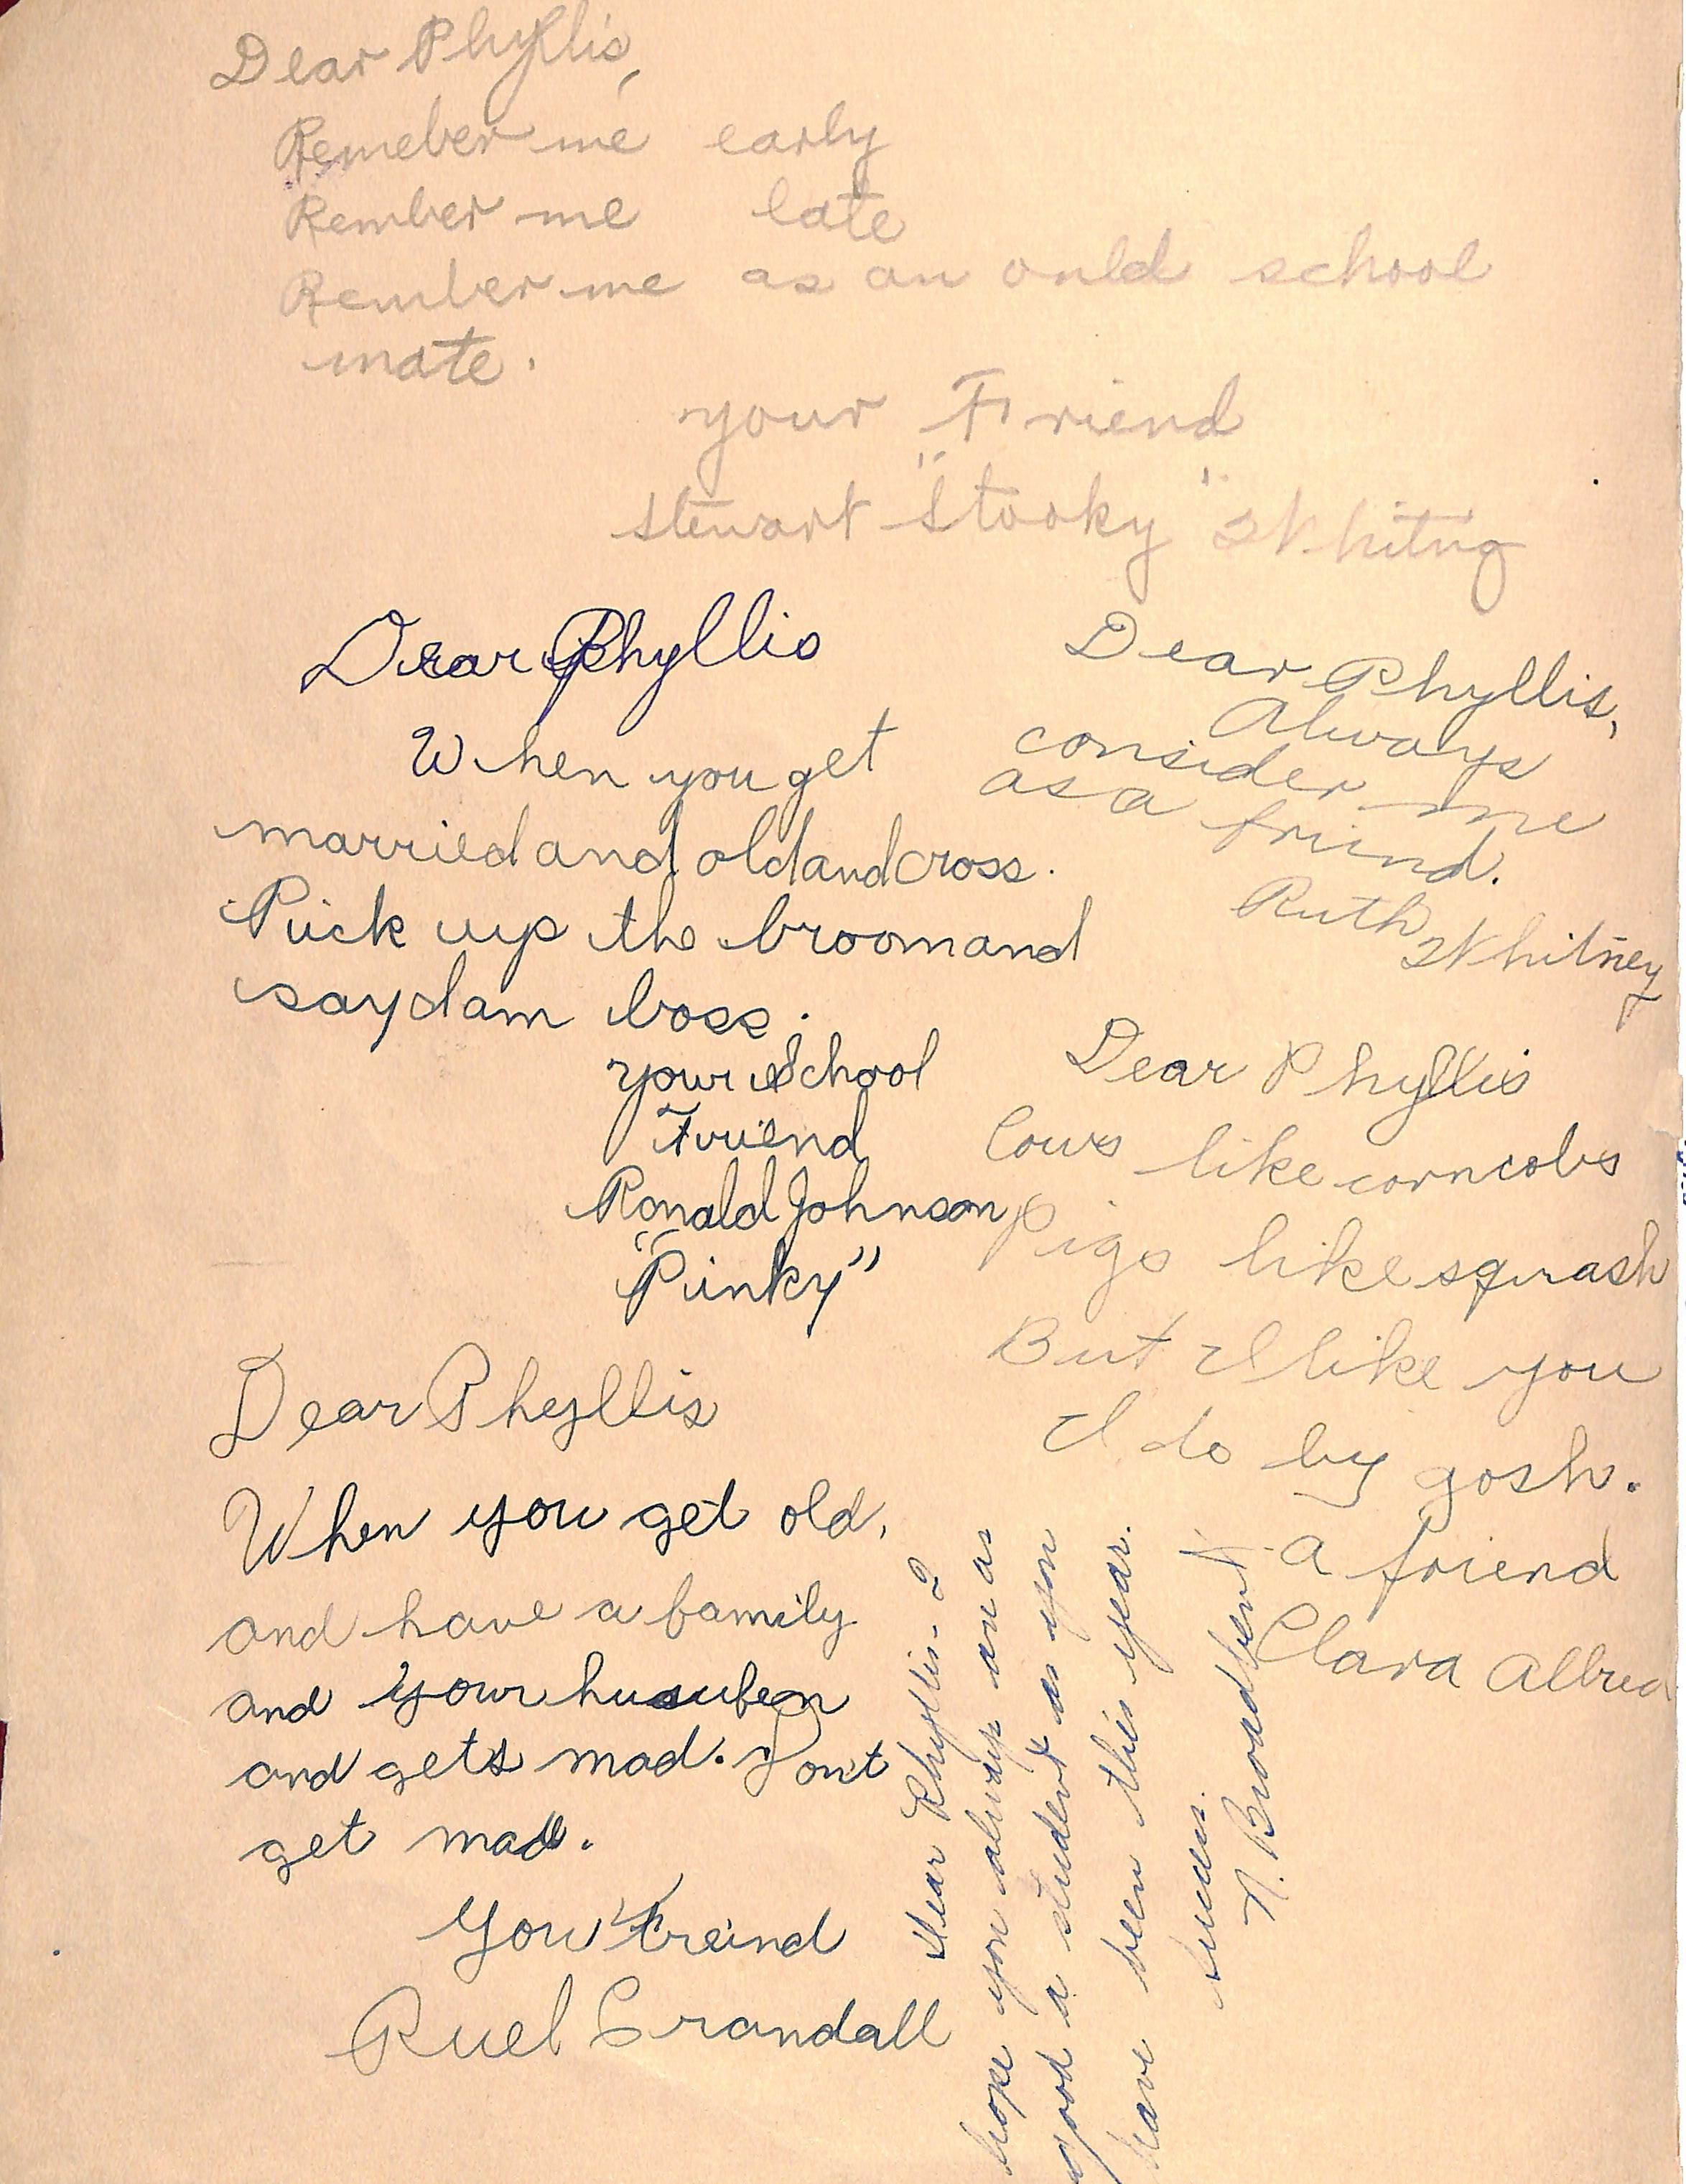 Dear Phyllis,
Remeber me early
Rember me late
Rember me as an onld school
mate.
your Friend
Stewart "Stooky" Whitng
Dear Phyllis
When you get
married and old and cross.
Pick up the broom and
say dam boss.
your School
Friend
Ronald Johnson
"Pinky"
Dear Phyllis,
Always
consider me
as a friend.
Ruth Whitney
Dear Phyllis
Cows like corncobs
Pigs like squash
But I like you
I do by gosh.
a friend
Clara Albrea
Dear Phyllis
When you get old,
and have a family
and your
and gets mad. Don't
get mad.
You Freind
Ruel Crandall
Dear Phyllis - I
hope you always are as
good a student as you
have been this year.
Success.
N. Broadbent